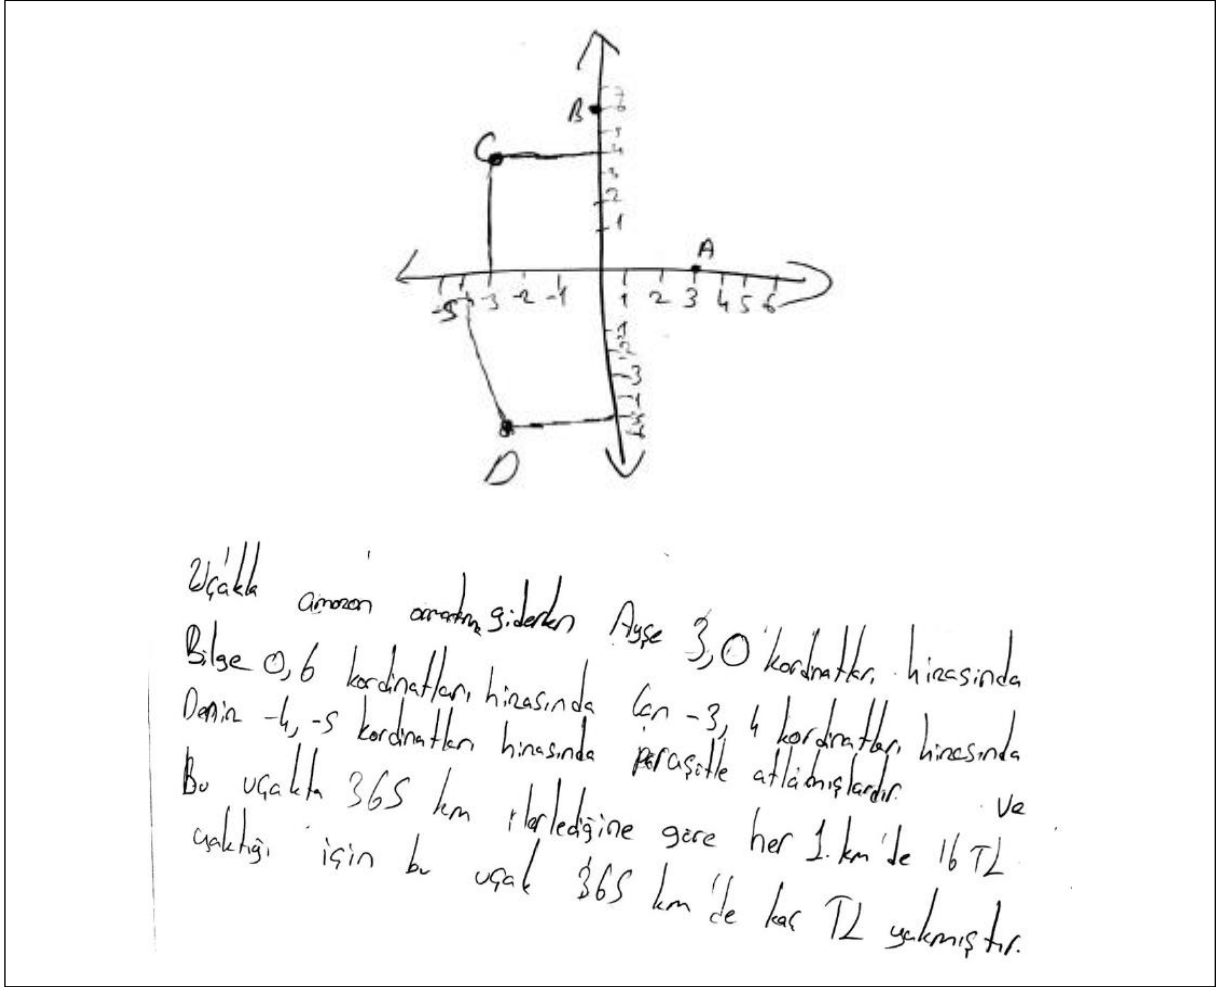 B
7
6
5
C
4
3
2
1
A
-5 -3 -2 -1 1 2 3 4 5 6
-1
-2
-3
D
Uçakla amazon ormanına giderken Ayşe 3,0 kordnatları hizasında
Bilge 0,6 kordinatları hizasında Can -3, 4 kordnatları hizasında
Deniz -4, -5 kordinatları hinasında paraşütle atlamışlardır. ve
Bu uçakta 365 km ilerlediğine göre her 1.km'de 16 TL
yaktığı için bu uçak 365 km'de kaç TL yakmıştır.